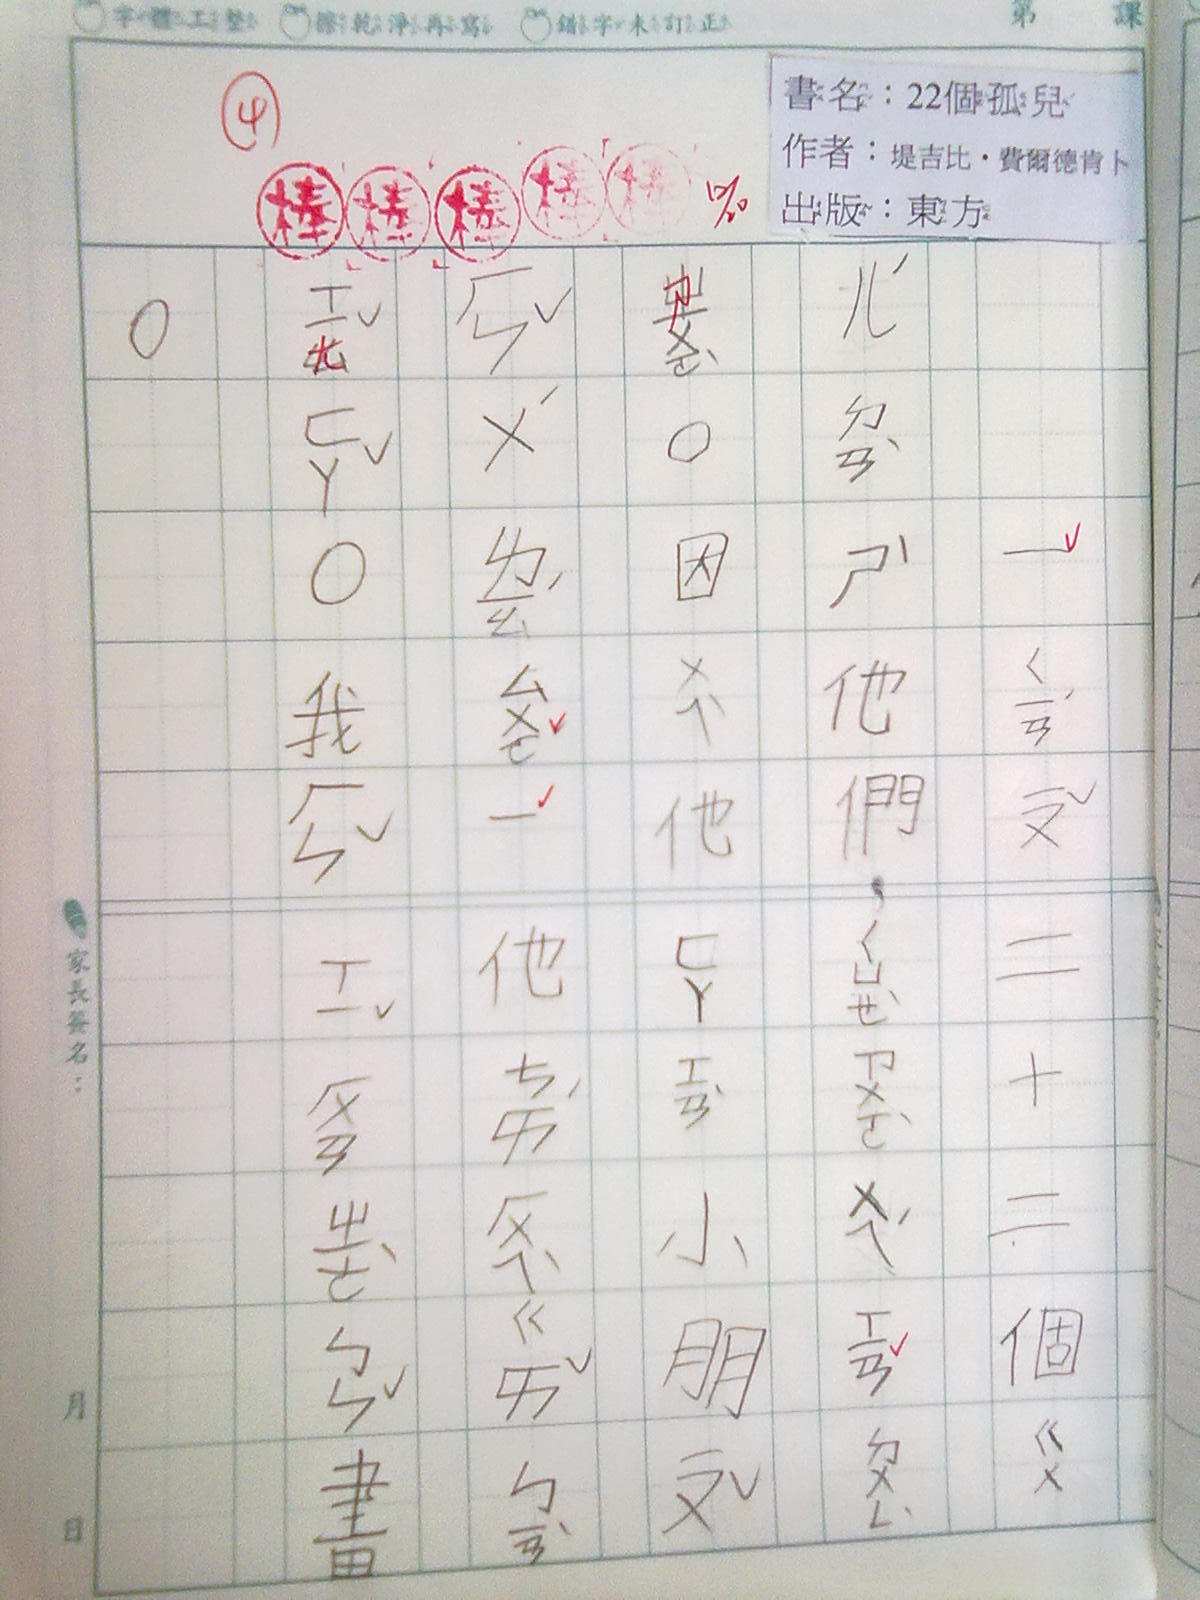 字體工整 擦乾淨再寫 錯字未訂正 第 課
④
棒 棒 棒 棒 棒
書名：22個孤兒
作者：堤吉比・費爾德肯卜
出版：東方
ㄧˇㄑㄧㄢˊㄧㄡˇ二十二個ㄍㄨ
ㄦˊㄉㄢˋㄕˋ他們，ㄑㄩㄝˋㄗㄨㄛˋㄨㄟˊㄒㄧㄢˇㄉㄨㄥˋ
ㄗㄨㄛˋ。因ㄨㄟˋ他ㄈㄚㄒㄧㄢˋ小朋ㄧㄡˇ
ㄏㄣˇㄨˊㄌㄧㄠˊㄙㄨㄛˇㄧˇ他ㄘㄞˊㄏㄨㄟˋㄍㄞˇㄅㄧㄢˋ
ㄒㄧㄤˇㄈㄚˇ。我ㄏㄣˇㄒㄧˇㄏㄨㄢㄓㄜˋㄅㄣˇ畫
。
家長簽名： 月 日